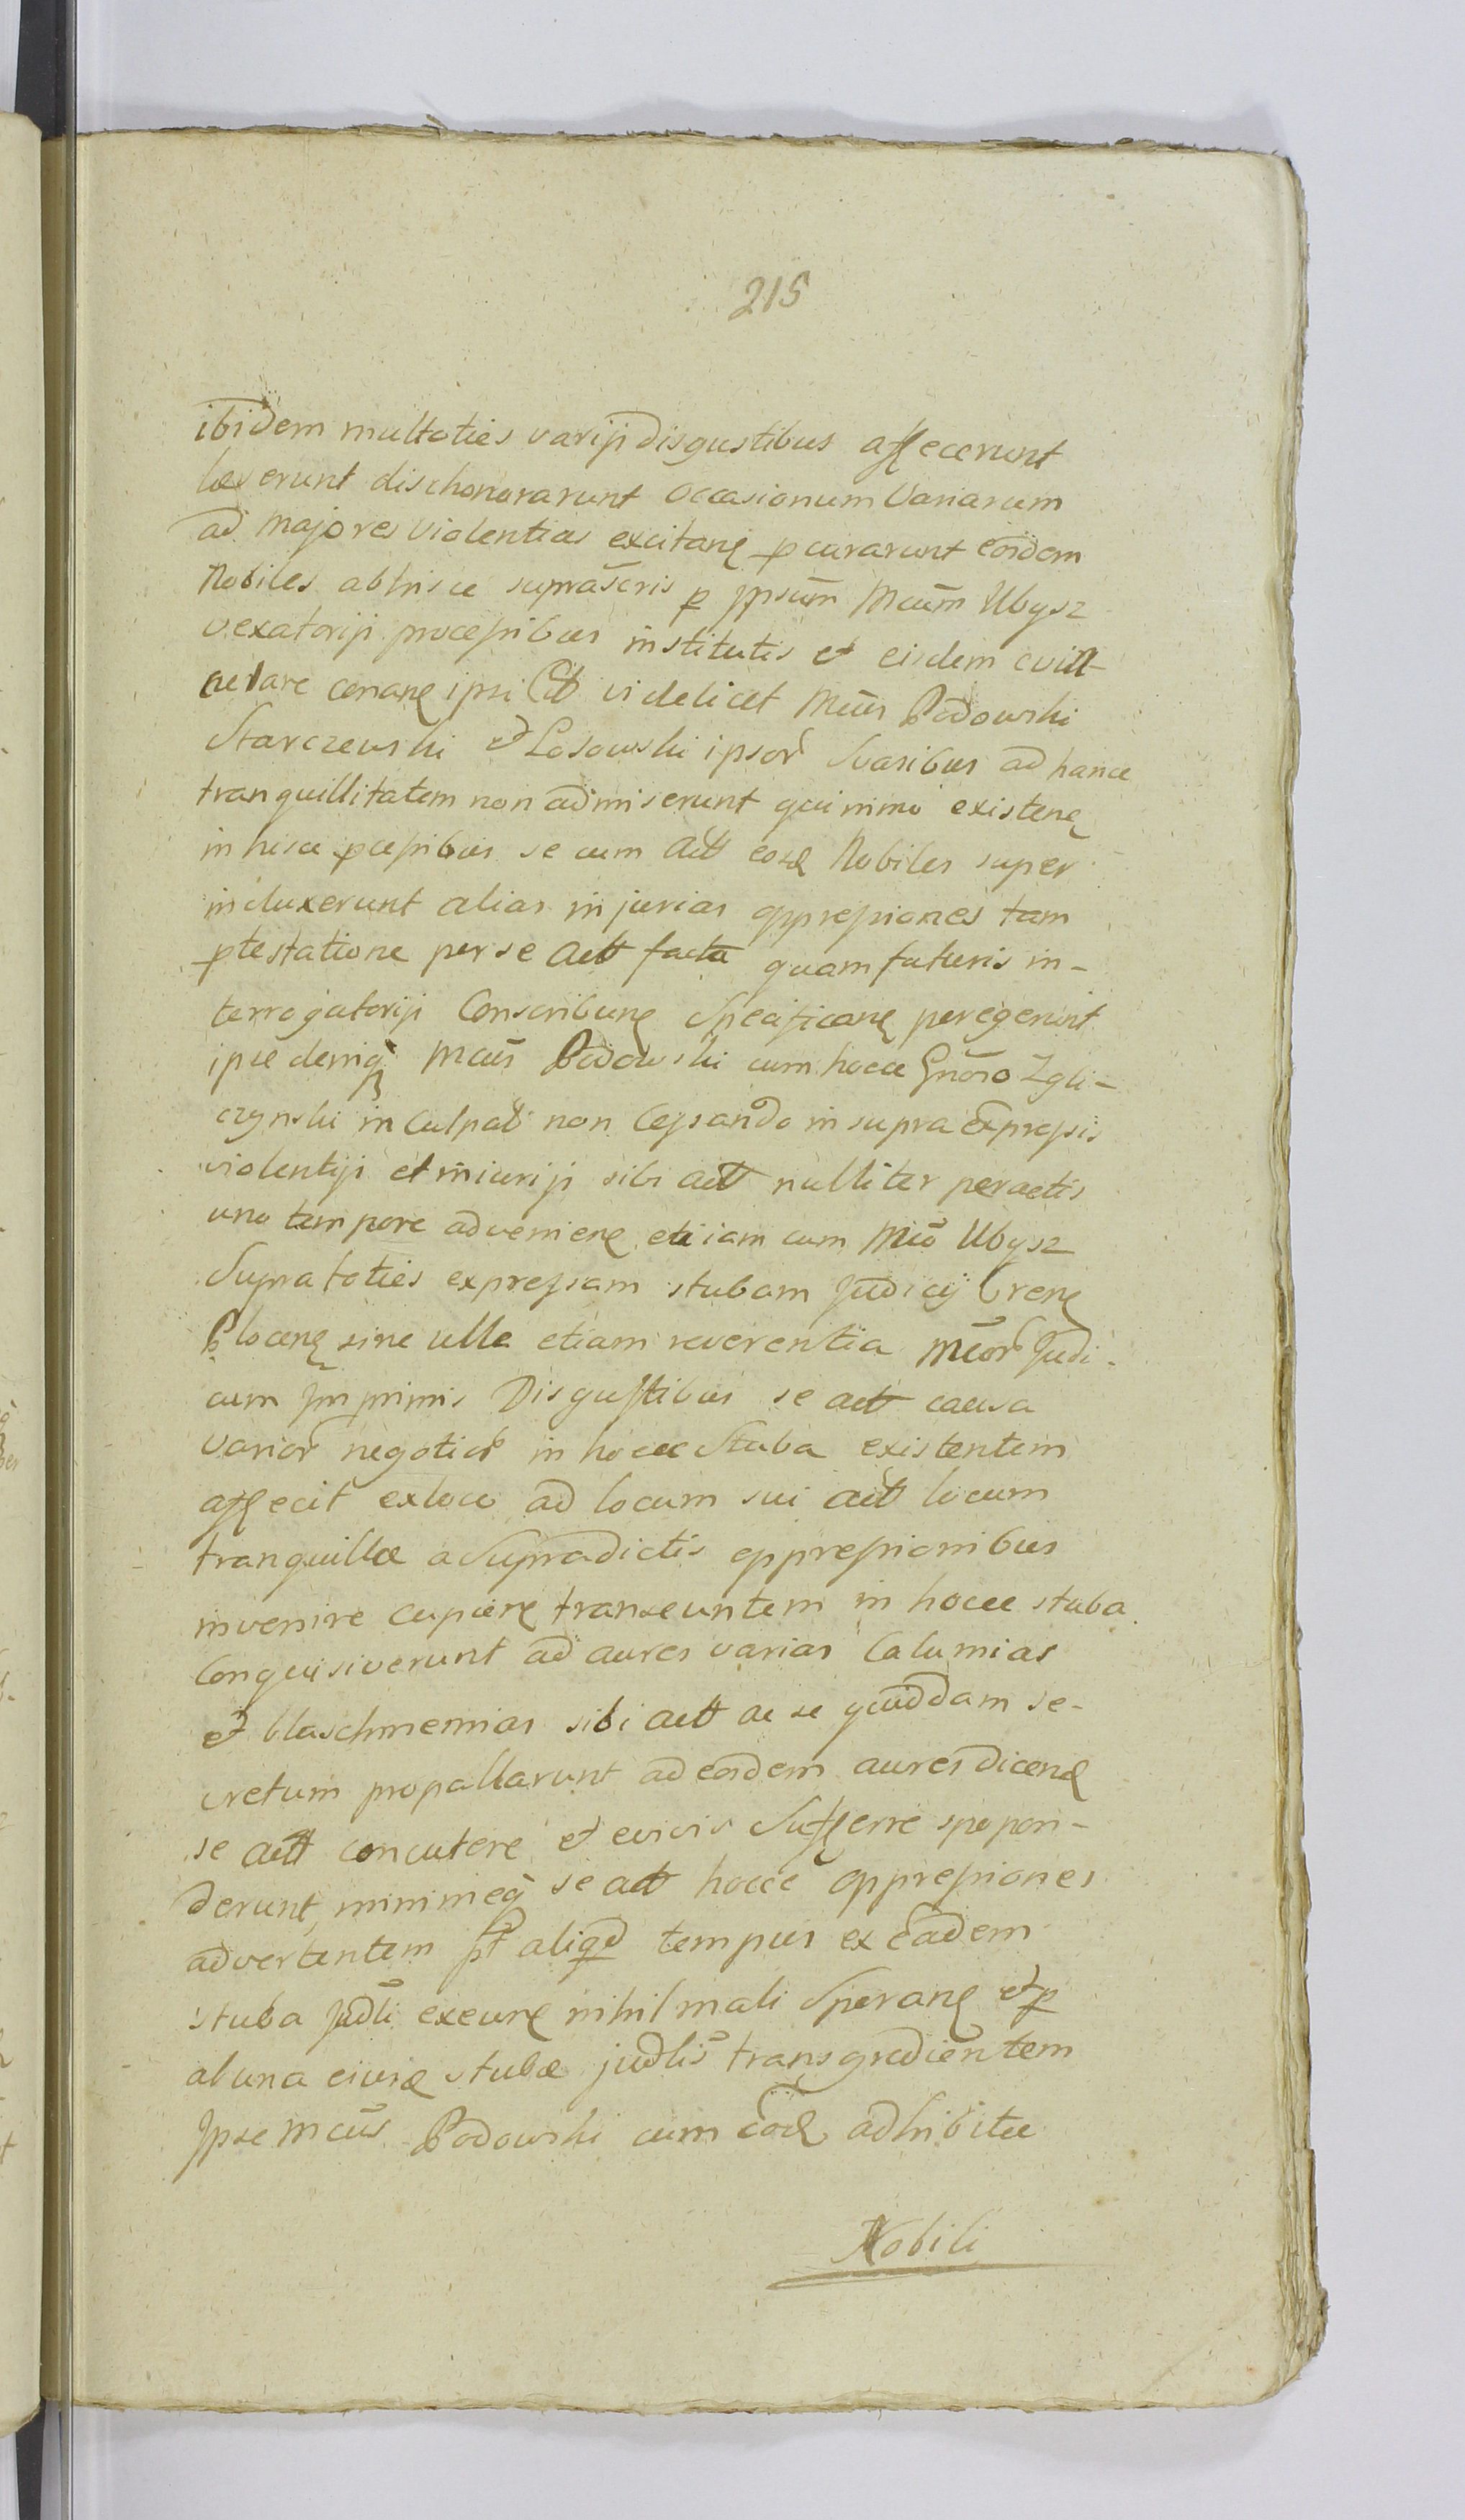 215
ibidem multoties varijs disgustibus affecerunt
læserunt dischonorarunt occasionum Variarum
ad majores violentias excitanȩ pcurarunt eosdem
Nobiles abhisce suprascris p ipsum Mcum Ubysz
vexatorijs processibus institutis et eisdem
conanȩ ipsi videlicet Mcus Podowski
Starczewski et Losowski ipsor Suasibus ad hance
tranquillitatem non admiserunt quinimo existenȩ
in hisce pcessibus se cum Actt eosd Nobiles super
induxerunt alias injurias oppressiones tam
ptestatione per se Actt facta quam futuris in-
terrogatorijs Conscribunȩ Specificanȩ peregerunt
ipse deniq Mcus Podowski cum hocce Gnoso Zgli-
czynski inculpat non Cessando in supra expressis
violentijs et iniurijs sibi actt nulliter peractis
uno tempore advenienȩ etiam cum Mco Ubysz
Supratoties expressam stubam Judicij Crenȩ
Plocenȩ sine ulla etiam reverentia Mcor Judi-
cum Jmprimis Disgustibus se actt causa
varior negotior in hocce Stuba existentem
affecit exloco ad locum sui actt locum
tranquillæ a Supradictis oppressionibus
invenire cupienȩ transeuntem in hocce stuba
Conquisiverunt ad aures varias Calumias
et blaschmemias sibi actt ac se quoddam se-
cretum propallarunt ad eosdem aures dicend
se actt concutere et evivis Sufferre spopon-
derunt, minimeq se actt hocce oppressiones
advertentem pt aliqd tempus ex eadem
stuba Judli exeunȩ nihil mali Speranȩ et p
abuna eiusd stubæ judlis transgredientem
Jpse Mcus Podowski cum eod adhibito
Nobili